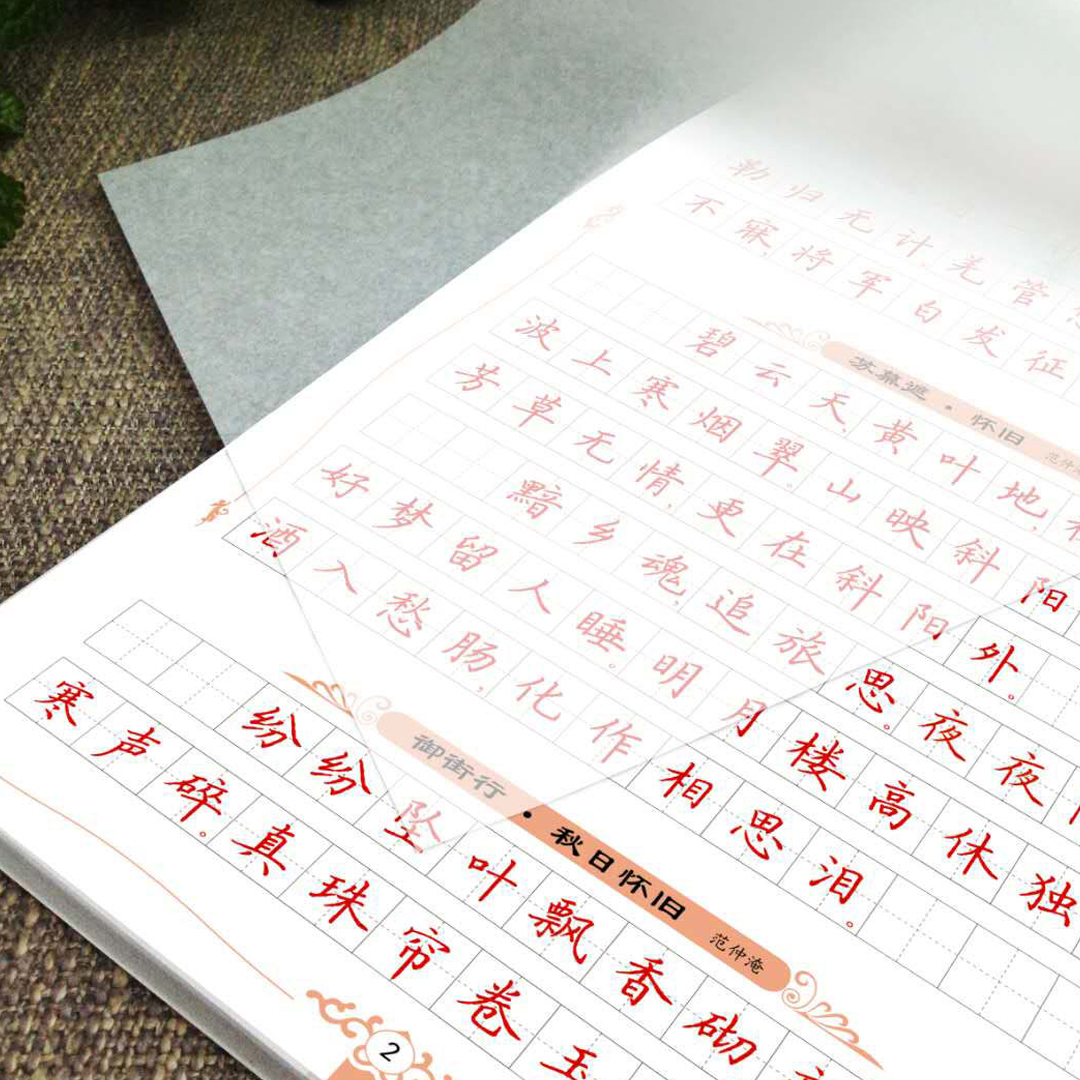 勒归无计,羌管
不寐,将军白发征
苏幕遮·怀旧
范仲
碧云天,黄叶地,
波上寒烟翠。山映斜阳
芳草无情,更在斜阳外。
黯乡魂,追旅思。夜夜
好梦留人睡。明月楼高休独
酒入愁肠,化作相思泪。
御街行·秋日怀旧
范仲淹
纷纷坠叶飘香砌
寒声碎。真珠帘卷玉
2